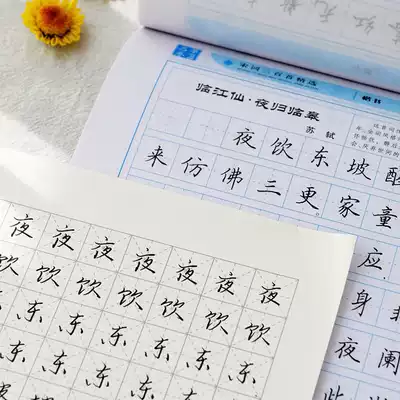 宋词三百首精选
临江仙·夜归临皋
苏轼
夜饮东坡醒
来仿佛三更家童
应
身
夜阑
此
夜夜夜夜夜夜夜
饮饮饮饮饮饮饮
东东东东东东
东东东东东东